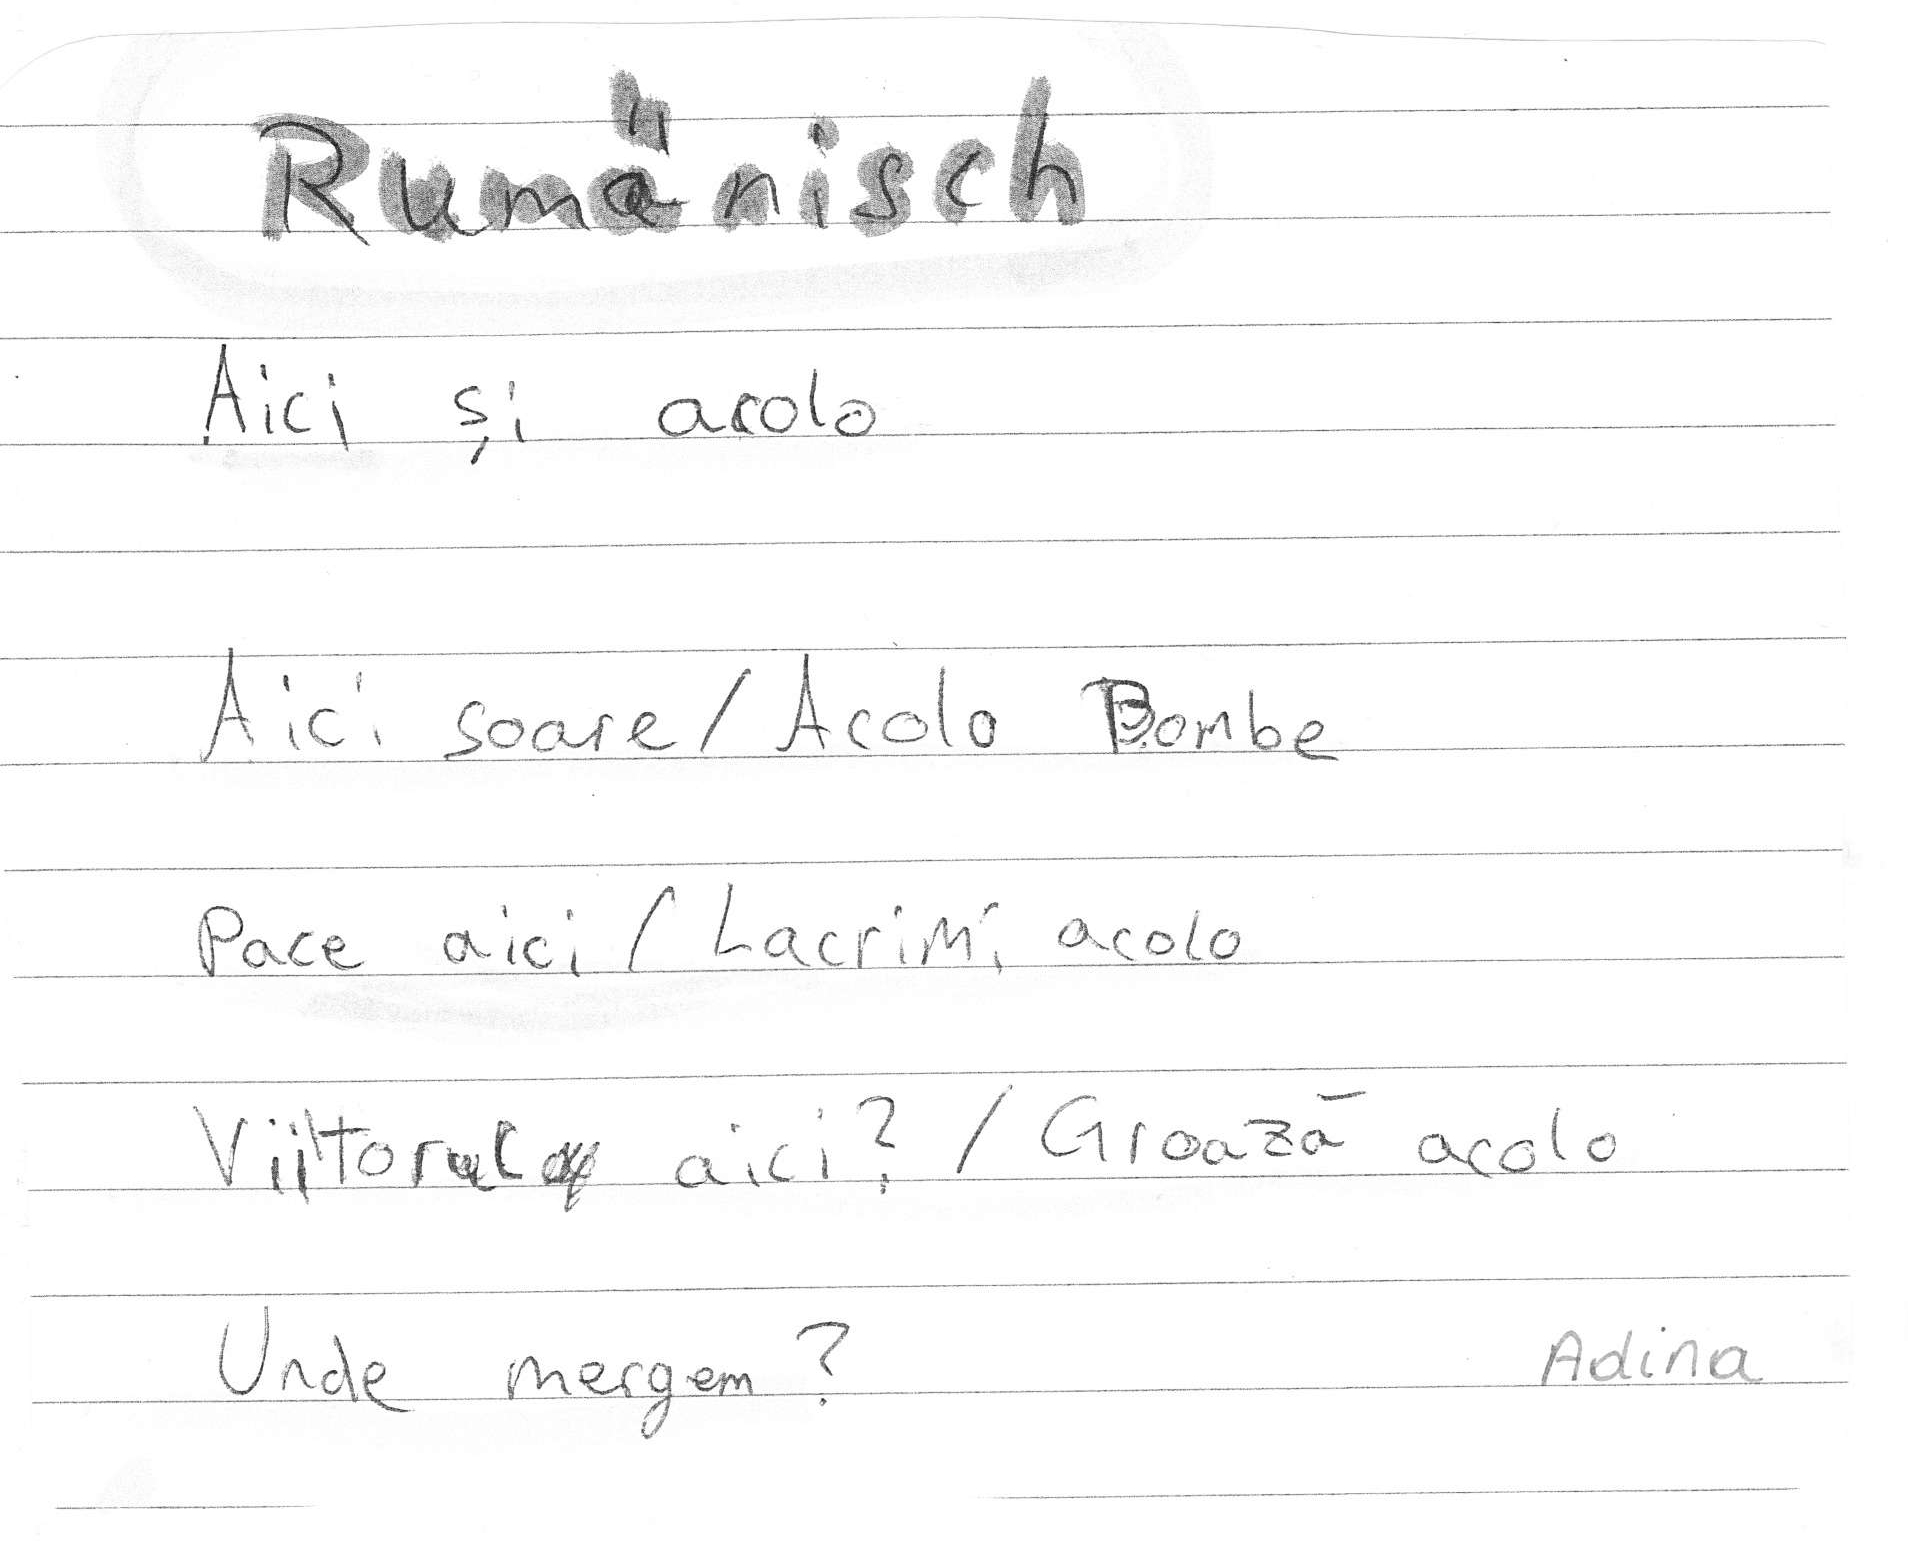 Rumänisch
Aici și acolo
Aici soare / Acolo Bombe
Pace aici / Lacrimi acolo
Viitorul aici? / Groază acolo
Unde mergem? Adina